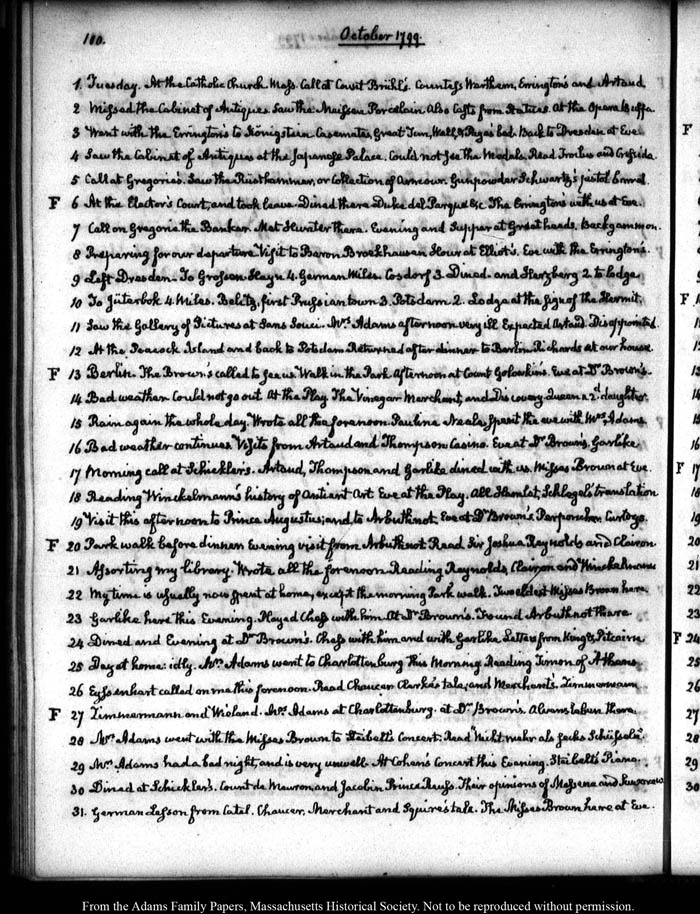 100.
October 1799.
1 Tuesday. At the Catholic Church. Mass. Call at Count Brühl's. Countess Warthem, Errington's and Artaud
2 Missed the Cabinet of Antiques. Saw the Meissen Porcelain. Also Casts from Statues. At the Opera Buffa.
3 Went with the Errington's to Königstein. Casemates, Great Tun, Well, & Page's bed. Back to Dresden at Eve
4 Saw the Cabinet of Antiques at the Japanese Palace. Could not see the Medals. Read Troilus and Cressida.
5 Call at Gregorie's. Saw the Rustkammer, or Collection of Armour. Gunpowder Schwartz's pistol
F 6 At the Elector's Court, and took leave. Dined there Duke del Parque &c. The Errington's with us at Eve.
7 Call on Gregorie the Banker. Met Hunter there. Evening and Supper at Greatheads. Backgammon.
8 Preparing for our departure Visit to Baron Brockhausen. Hour at Elliot's. Eve with the Errington's.
9 Left Dresden. To Grossen Hayn 4. German Miles. Cosdorf 3. Dined. and Herzberg 2 to lodge
10 To Jüterbok 4. Miles. Belitz, first Prussian town 3. Potsdam 2. Lodge at the sign of the Hermit.
11 Saw the Gallery of Pictures at Sans Souci. Mrs. Adams afternoon very ill Expected Artaud. Disappointed.
12 At the Peacock Island and back to Potsdam Returned after dinner to Berlin. Richards at our house.
F 13 Berlin. The Brown's called to see us. Walk in the Park. Afternoon at Count Golowkin's. Eve at Dr. Brown's.
14 Bad weather. Could not go out. At the Play. The Vinegar Merchant, and Discovery. Queen & 2d. daughter.
15 Rain again the whole day. Wrote all the forenoon. Pauline Neale, spent the eve with Mrs. Adams
16 Bad weather continues. Visits from Artaud and Thompson. Casino. Eve at Dr. Brown's. Garlike
17 Morning call at Schickler's. Artaud, Thompson and Garlike dined with us. Misses Brown at Eve.
18 Reading Winckelmann's history of Antient Art. Eve at the Play. All Hamlet, Schlegel's translation
19 Visit this afternoon to Prince Augustus; and to Arbuthnot. Eve at Dr. Brown's Perponcher. Curtoys.
F 20 Park walk before dinner. Evening visit from Arbuthnot Read Sir Joshua Reynolds and Clairon
21 Assorting my library. Wrote all the forenoon. Reading Reynolds, Clairon and Winckelmann
22 My time is usually now spent at home, except the morning Park walk. Two eldest Misses Brown here
23 Garlike here this Evening. Played Chess with him. At Dr. Brown's. Found Arbuthnot there
24 Dined and Evening at Dr. Brown's. Chess with him and with Garlike Letters from King & Pitcairn
25 Day at home: idly. Mrs. Adams went to Charlottenburg this Morning. Reading Timon of Athens
26 called on me this forenoon. Read Chaucer Clerke's tale, and Merchant's. Zimmermann
F 27 Zimmermann and Wieland. Mrs. Adams at Charlottenburg. at Dr. Brown's. Alvensleben there.
28 Mrs. Adams went with the Misses Brown to Steibelt's Concert. Read Nicht mehr als sechs Schüsseln.
29 Mrs. Adams had a bad night, and is very unwell. At Cohen's Concert this Evening. Steibelt's Piano.
30 Dined at Schickler's. Count de Meuron and Jacobin Prince Reuss. Their opinions of Massena and Suwarow
31. German Lesson from Catel. Chaucer, Merchant and Squire's tale. The Misses Brown here at Eve.
From the Adams Family Papers, Massachusetts Historical Society. Not to be reproduced without permission.